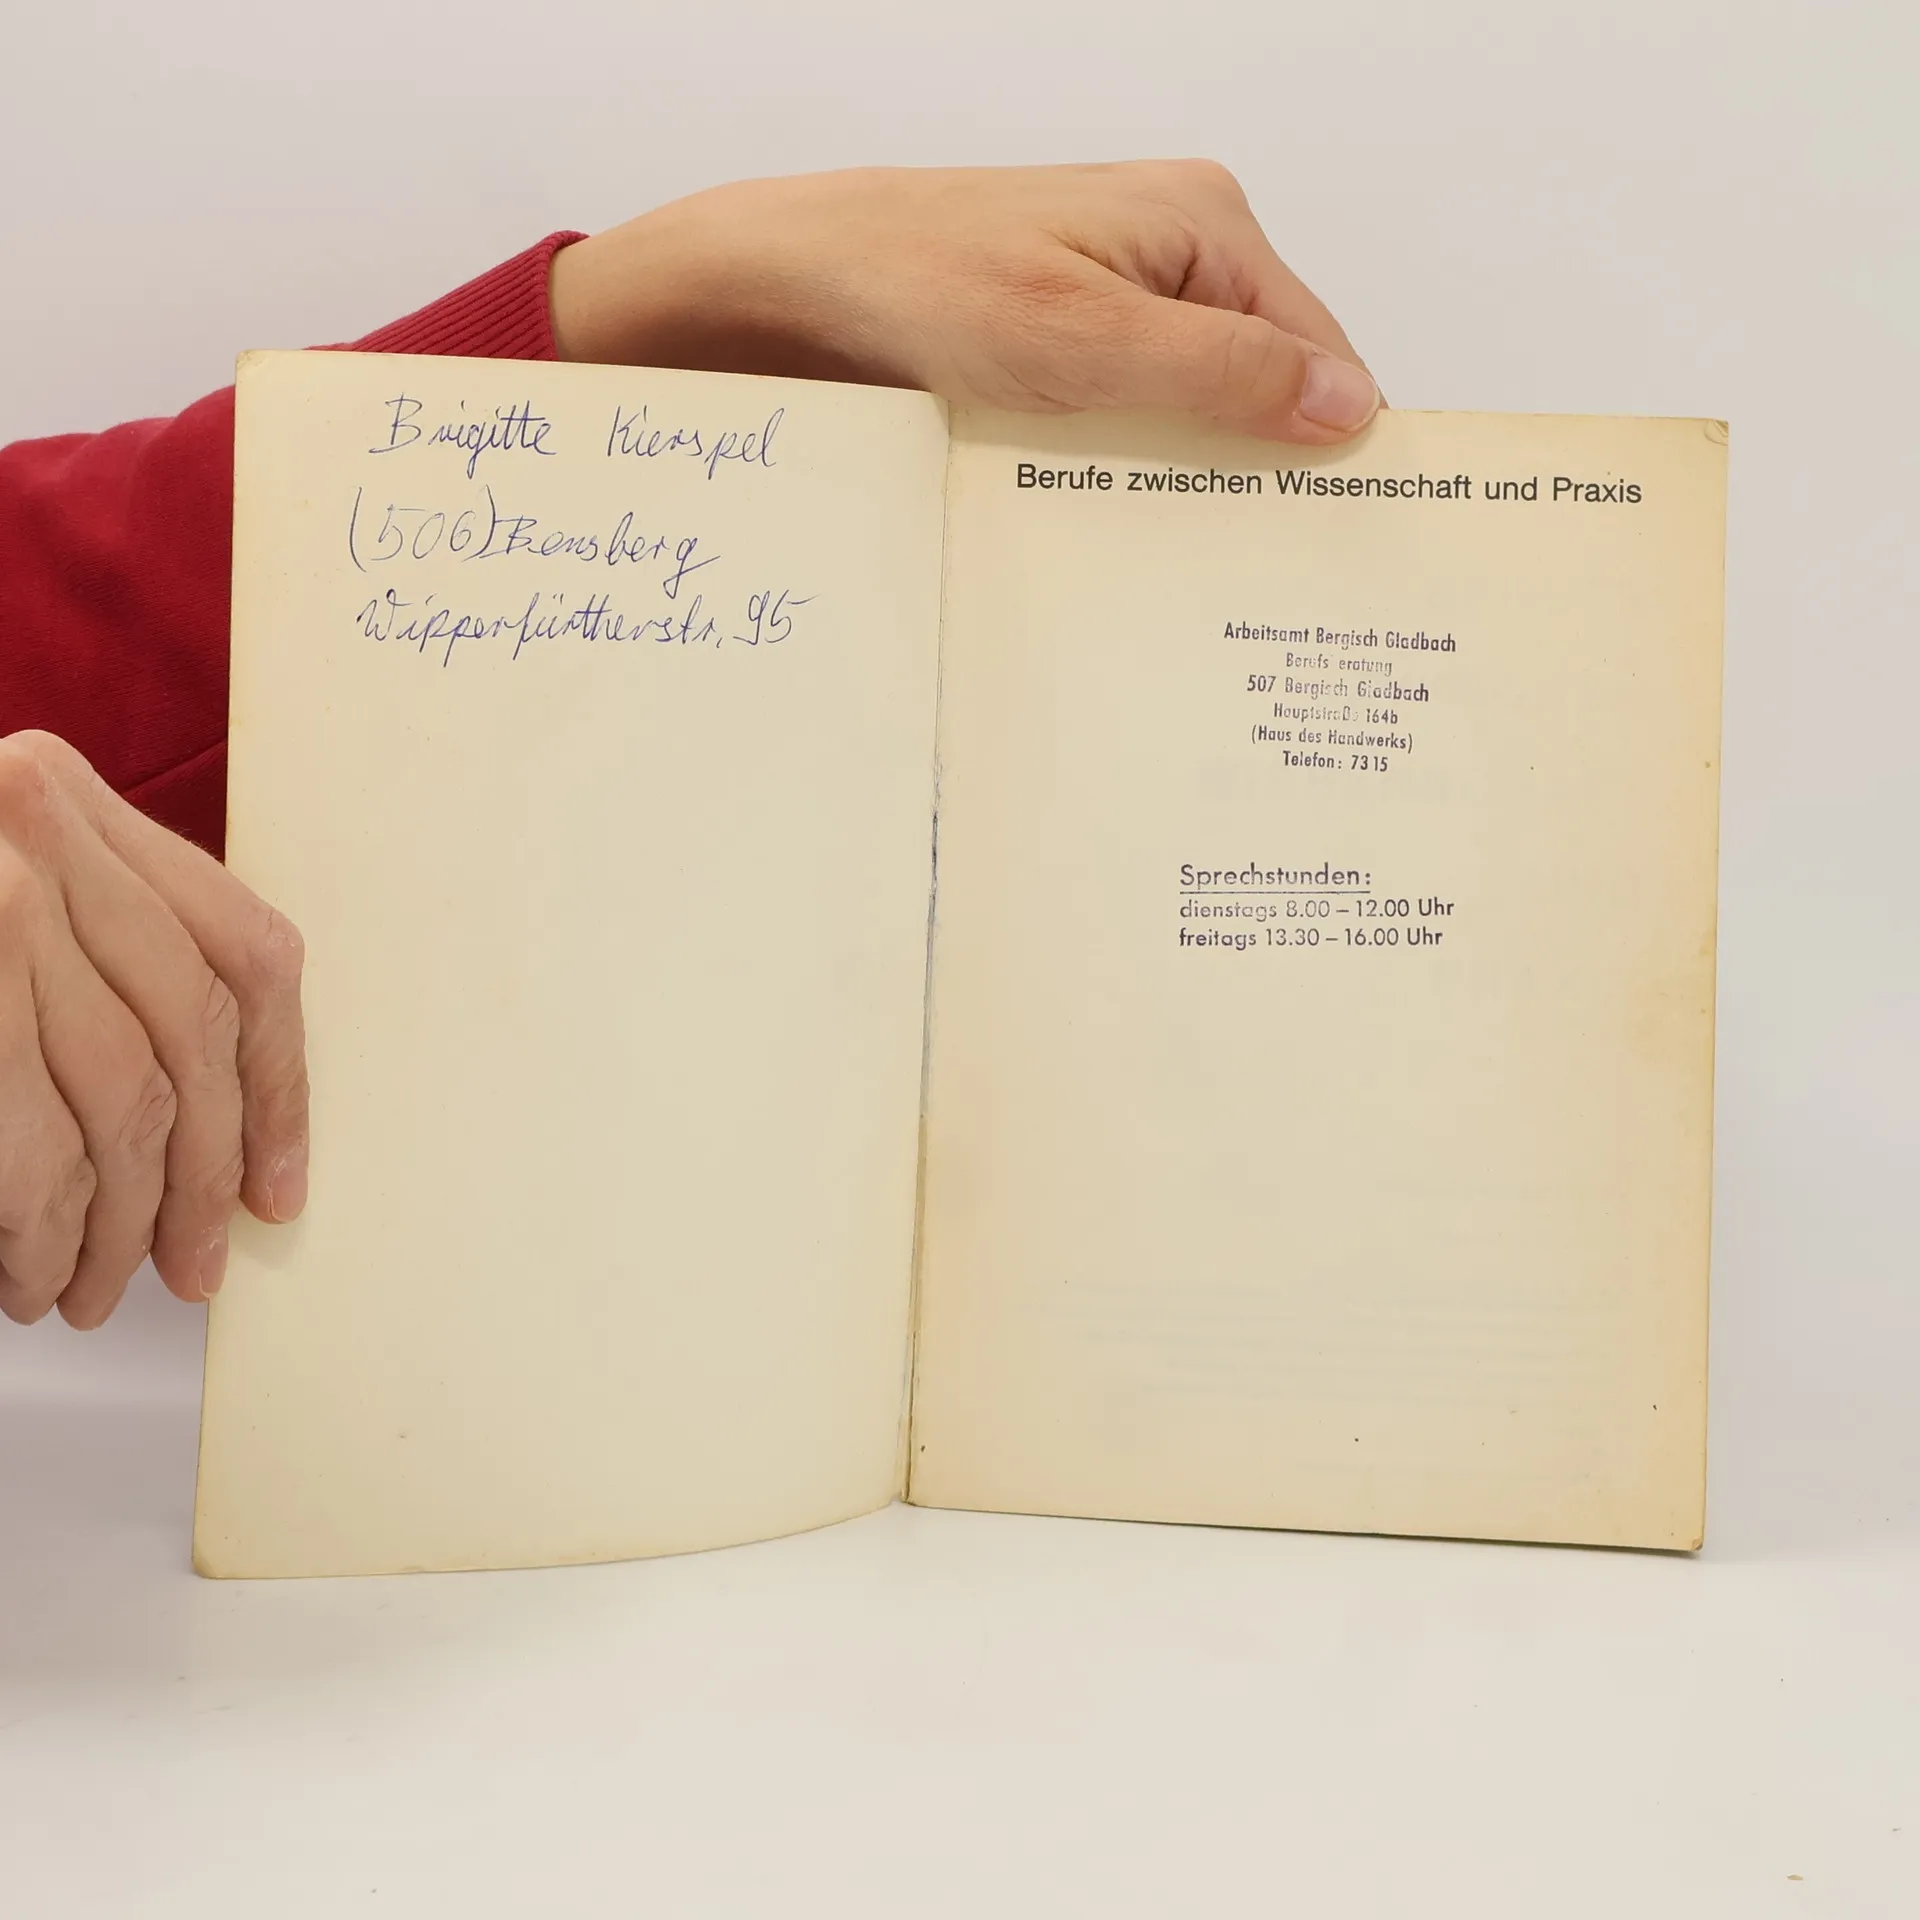 Brigitte Kierspel
(506) Bensberg
Wipperfürtherstr. 95
Berufe zwischen Wissenschaft und Praxis
Arbeitsamt Bergisch Gladbach
Berufs eratung
507 Bergisch Gladbach
Hauptstraße 164b
(Haus des Handwerks)
Telefon: 7315
Sprechstunden:
dienstags 8.00 – 12.00 Uhr
freitags 13.30 – 16.00 Uhr